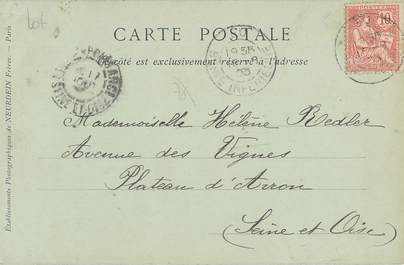 lot
CARTE POSTALE
Ce côté est exclusivement réservé à l'adresse
10
Mademoiselle Hélène Redler
Avenue des Vignes
Plateau d'Avron
(Seine et Oise)
Établissements Photographiques de NEURDEIN Frères. — Paris